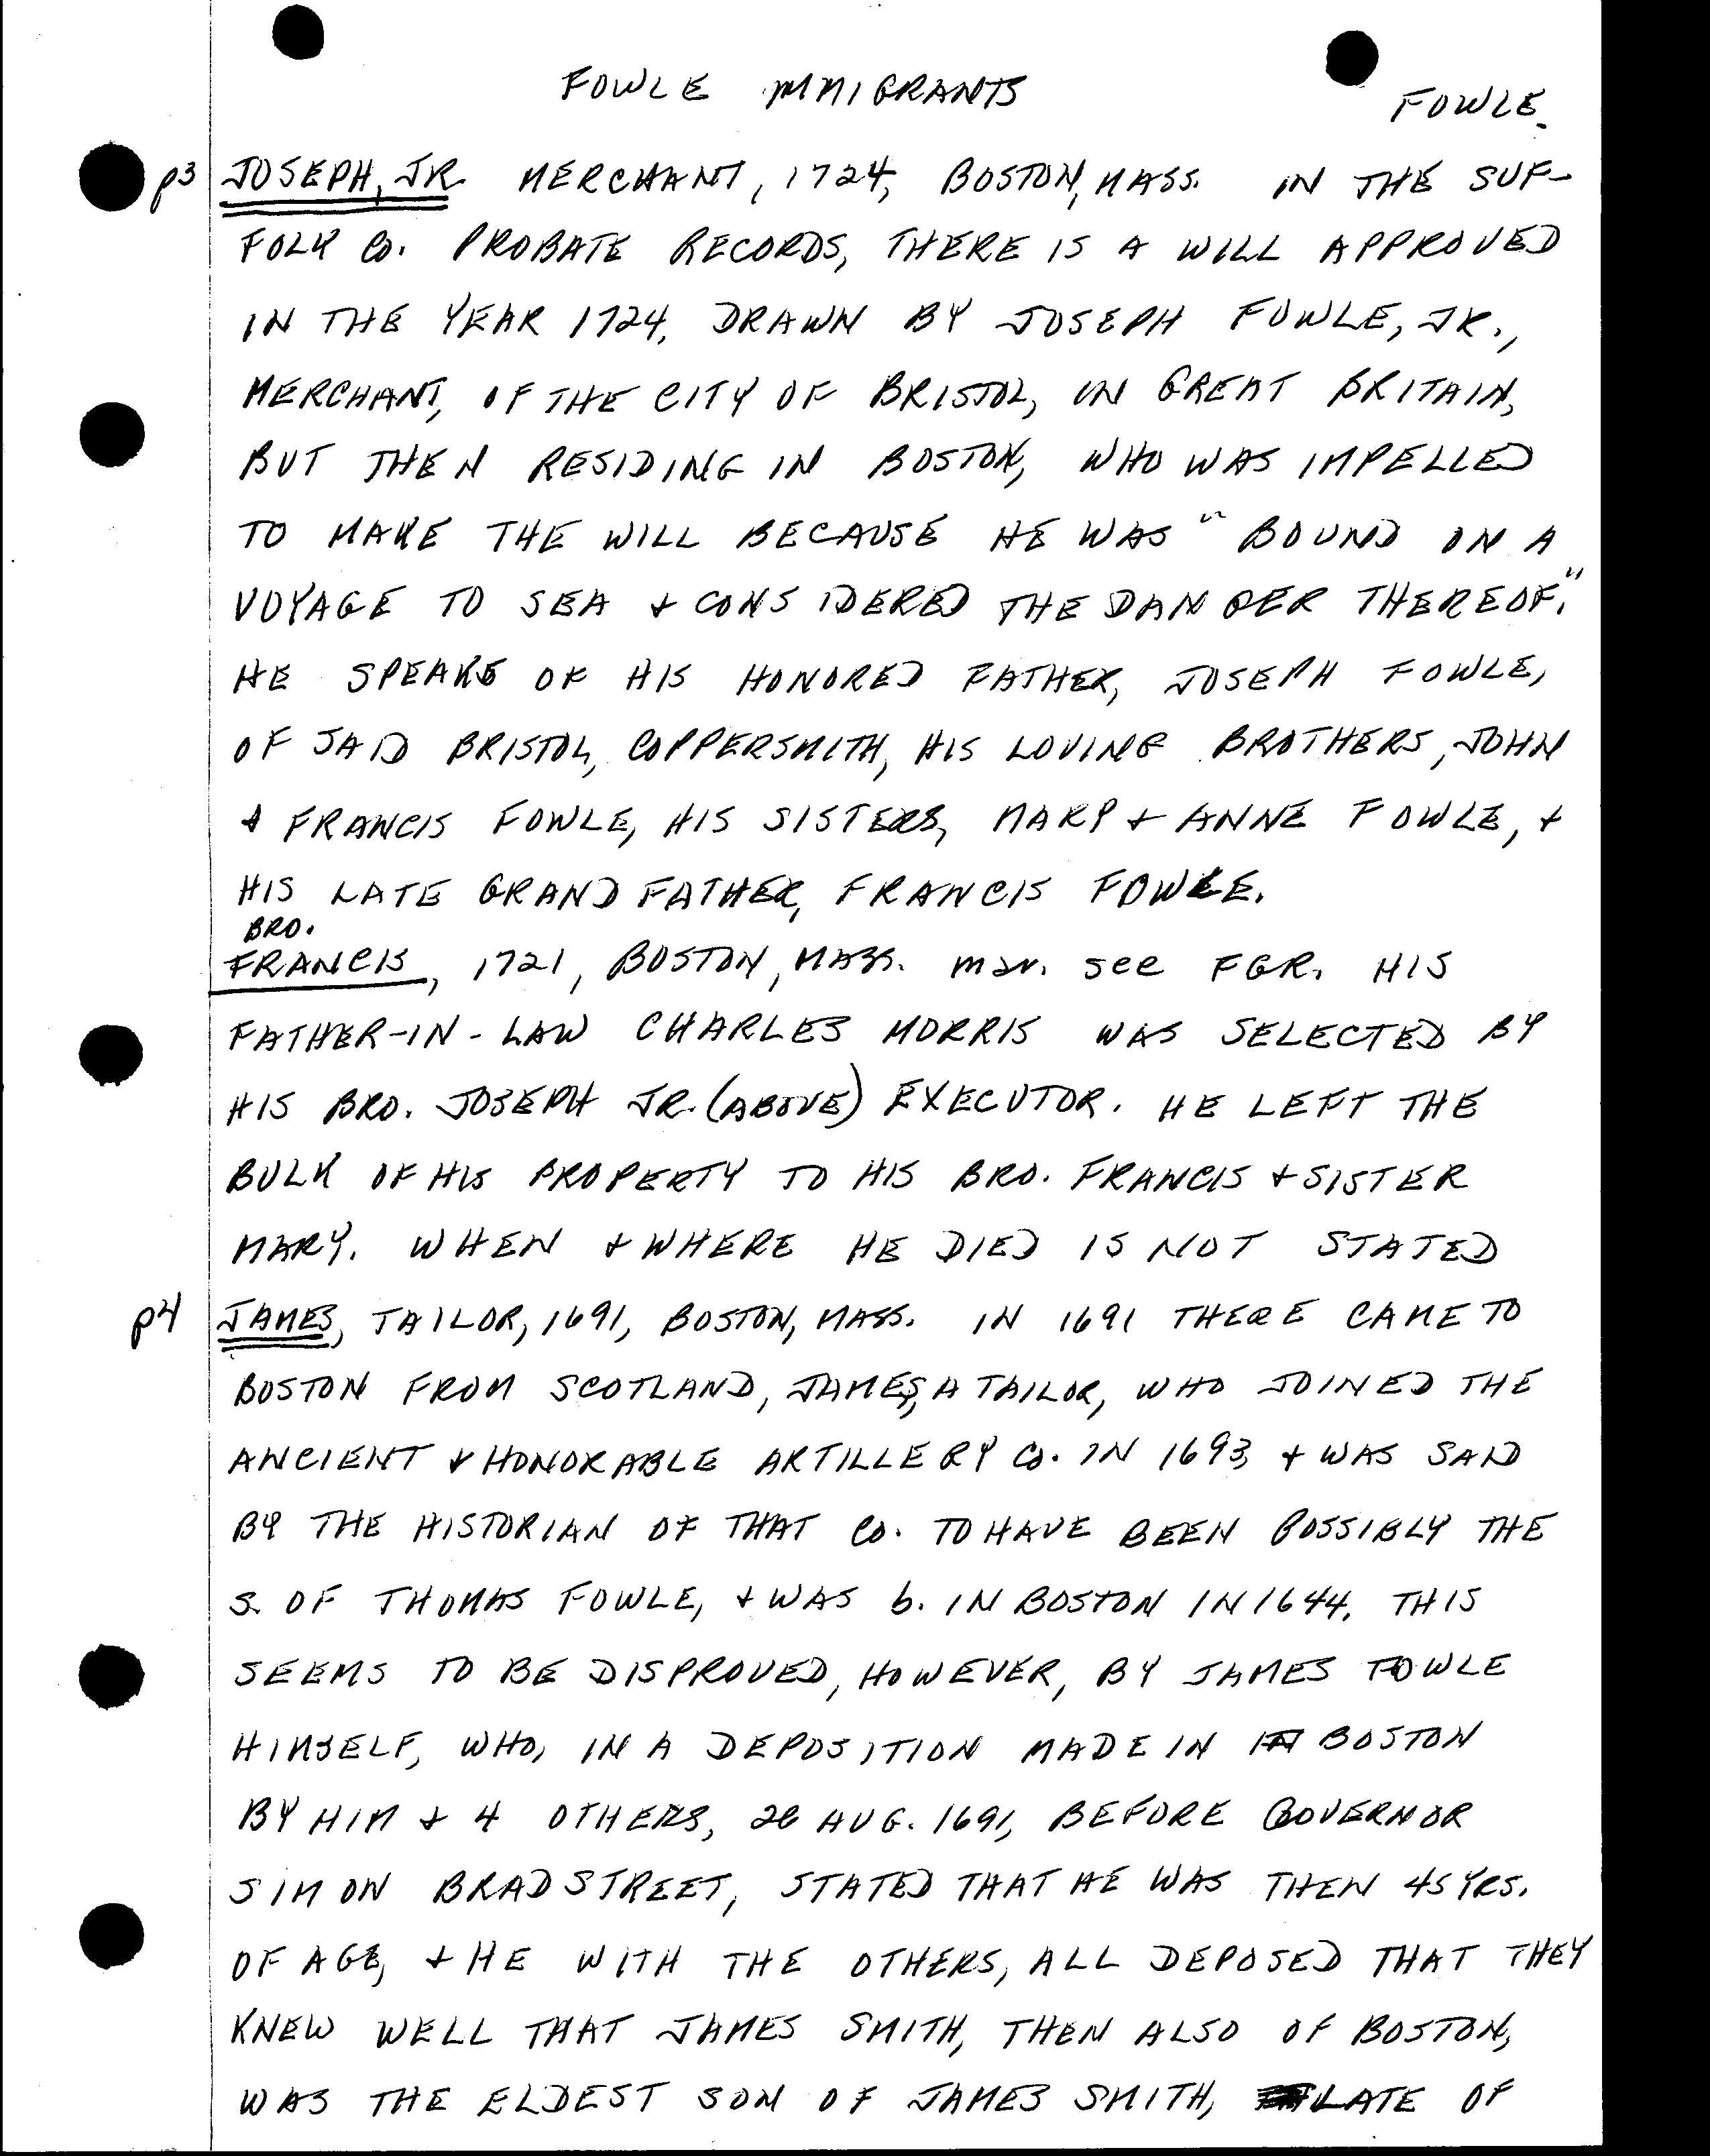 FOWLE IMMIGRANTS
FOWLE
p3 JOSEPH, JR. MERCHANT, 1724, BOSTON, MASS. IN THE SUF-
FOLK CO. PROBATE RECORDS, THERE IS A WILL APPROVED
IN THE YEAR 1724, DRAWN BY JOSEPH FOWLE, JR.,
MERCHANT, OF THE CITY OF BRISTOL, IN GREAT BRITAIN,
BUT THEN RESIDING IN BOSTON, WHO WAS IMPELLED
TO MAKE THE WILL BECAUSE HE WAS "BOUND ON A
VOYAGE TO SEA & CONSIDERED THE DANGER THEREOF."
HE SPEAKS OF HIS HONORED FATHER, JOSEPH FOWLE,
OF SAID BRISTOL, COPPERSMITH, HIS LOVING BROTHERS, JOHN
& FRANCIS FOWLE, HIS SISTERS, MARY & ANNE FOWLE, &
HIS LATE GRANDFATHER, FRANCIS FOWLE.
BRO.
FRANCIS, 1721, BOSTON, MASS. mar. see FGR. HIS
FATHER-IN-LAW CHARLES MORRIS WAS SELECTED BY
HIS BRO. JOSEPH JR. (ABOVE) EXECUTOR. HE LEFT THE
BULK OF HIS PROPERTY TO HIS BRO. FRANCIS & SISTER
MARY. WHEN & WHERE HE DIED IS NOT STATED
p4 JAMES, TAILOR, 1691, BOSTON, MASS. IN 1691 THERE CAME TO
BOSTON FROM SCOTLAND, JAMES, A TAILOR, WHO JOINED THE
ANCIENT & HONORABLE ARTILLERY CO. IN 1693, & WAS SAID
BY THE HISTORIAN OF THAT CO. TO HAVE BEEN POSSIBLY THE
S. OF THOMAS FOWLE, & WAS b. IN BOSTON IN 1644. THIS
SEEMS TO BE DISPROVED, HOWEVER, BY JAMES FOWLE
HIMSELF, WHO, IN A DEPOSITION MADE IN BOSTON
BY HIM & 4 OTHERS, 28 AUG. 1691, BEFORE GOVERNOR
SIMON BRADSTREET, STATED THAT HE WAS THEN 45 YRS.
OF AGE, & HE WITH THE OTHERS, ALL DEPOSED THAT THEY
KNEW WELL THAT JAMES SMITH, THEN ALSO OF BOSTON,
WAS THE ELDEST SON OF JAMES SMITH, LATE OF